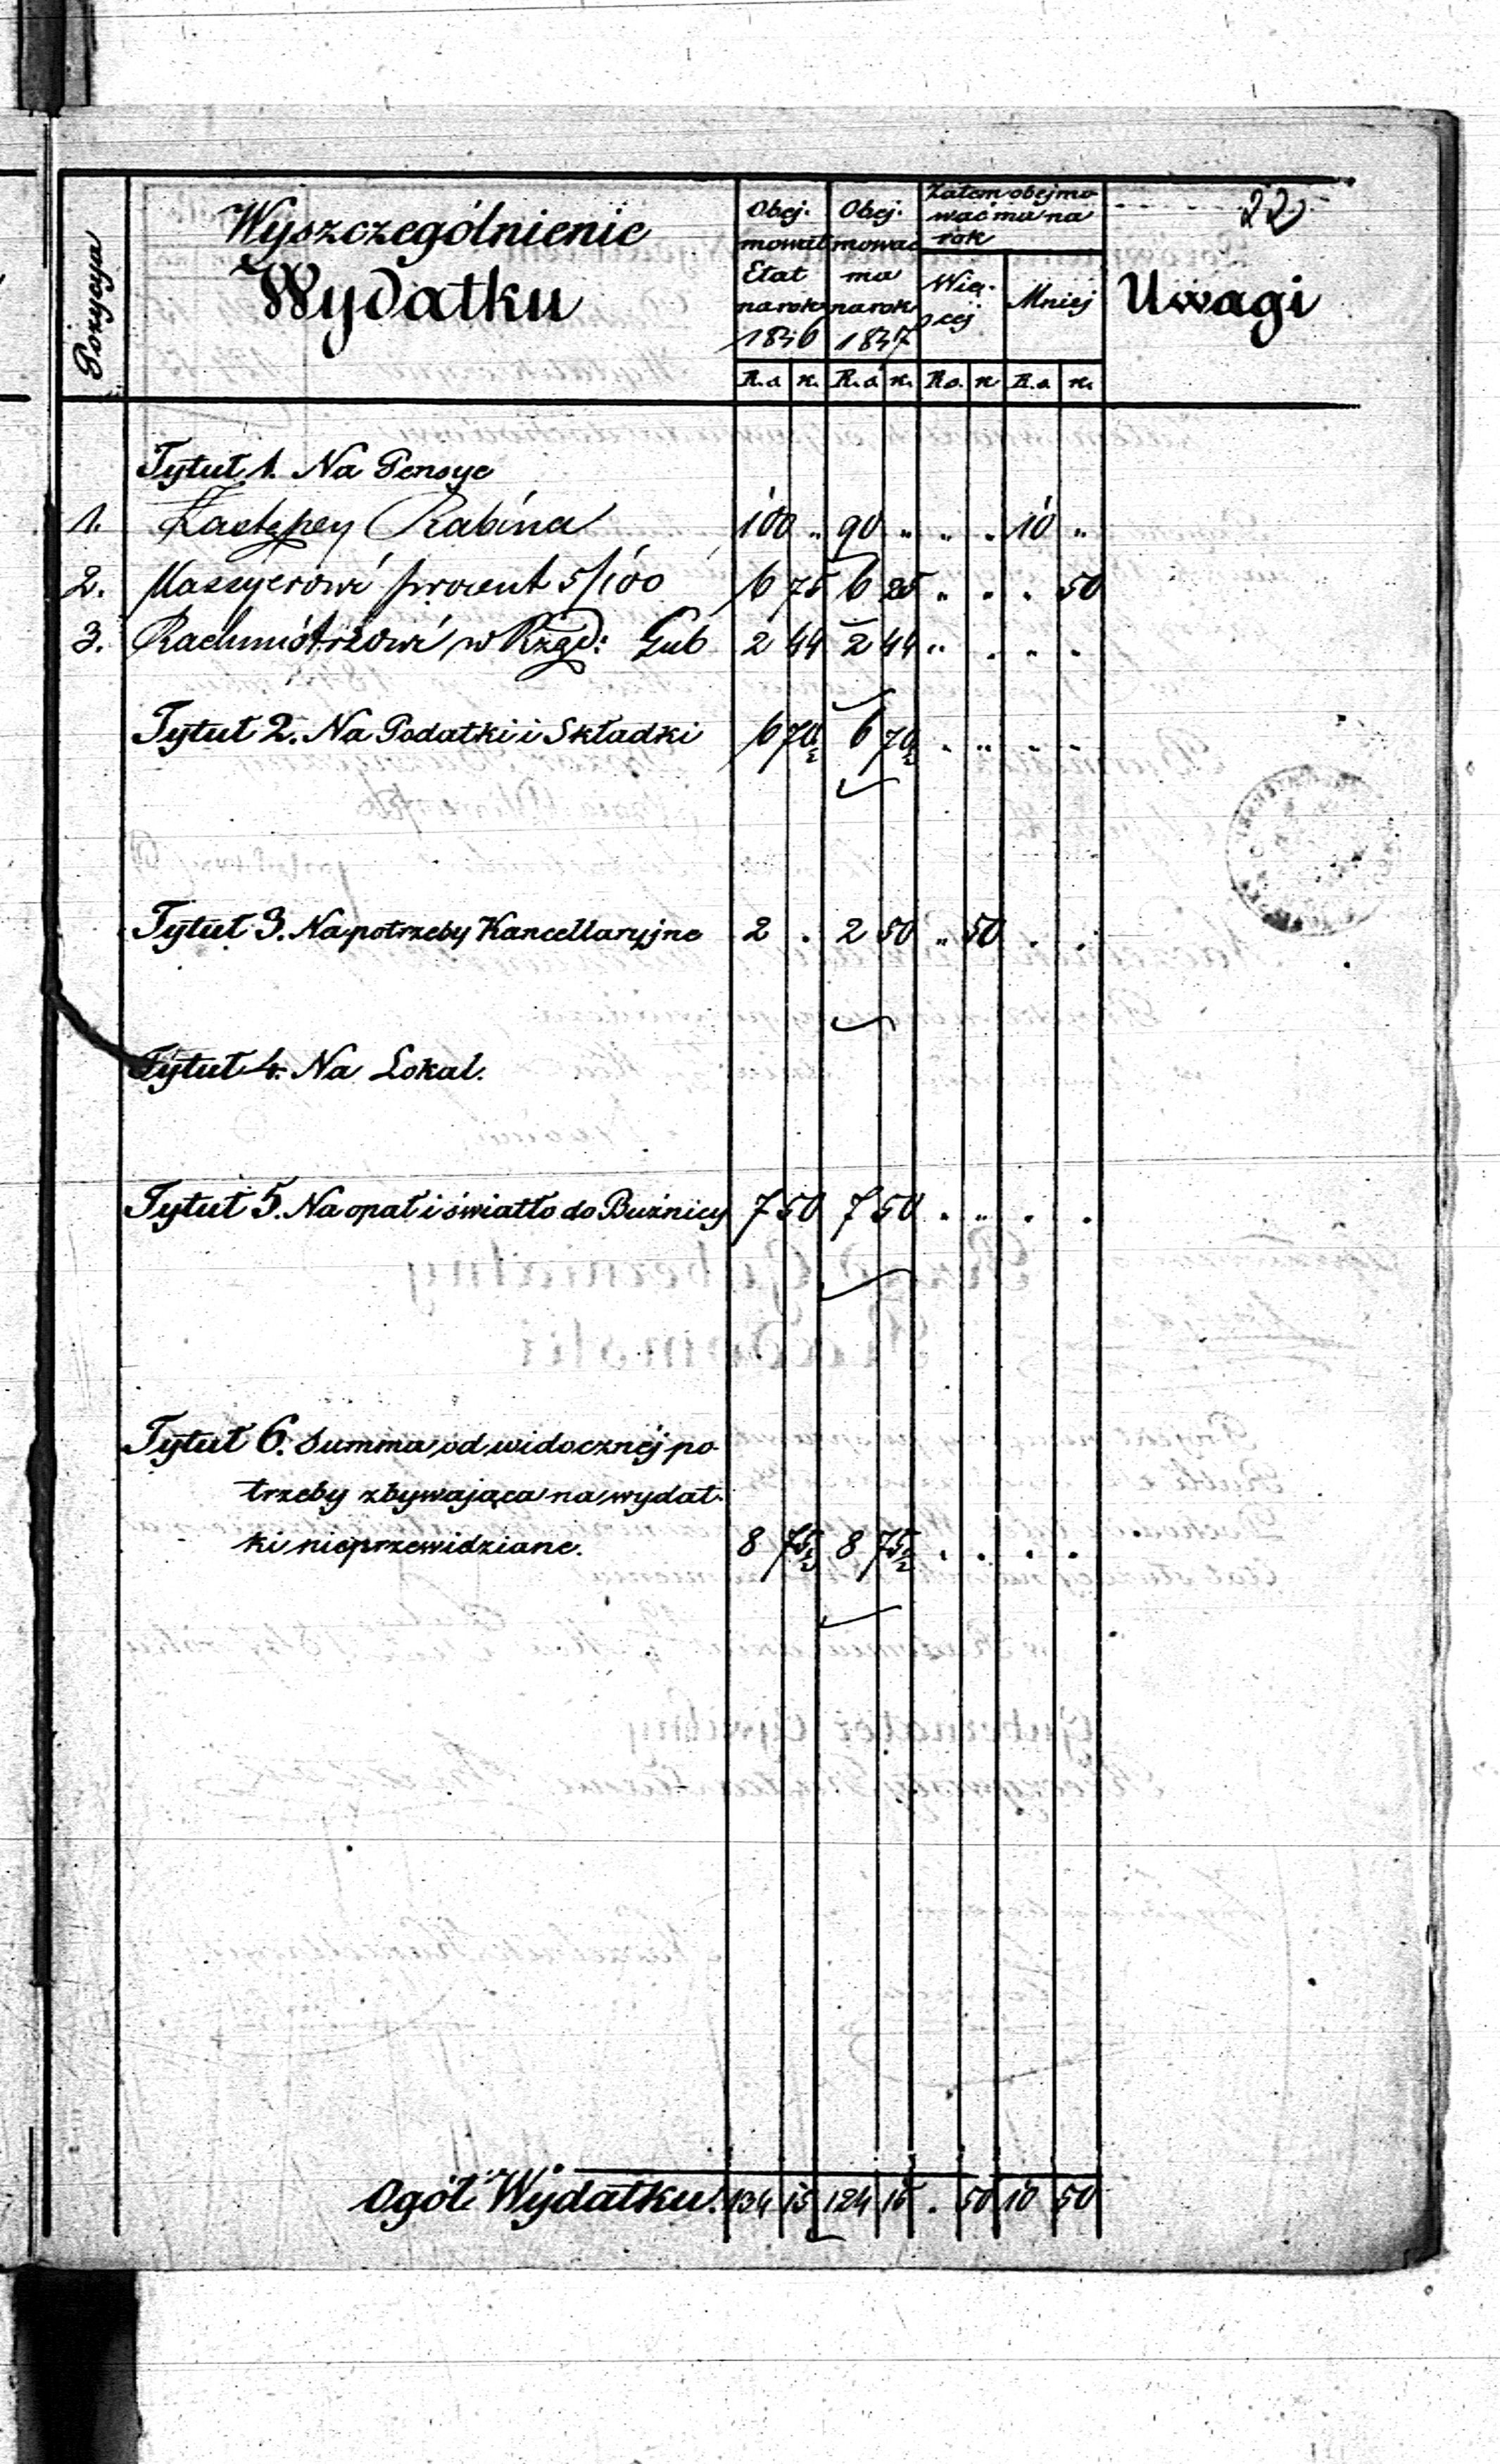 22
Pozycya
Wyszczególnienie
Wydatku
Obej-
mował
Etat
na rok
1846
Obej-
mować
ma
na rok
1847
Zatem obejmo
wać ma na
rok
Wię-
cej
Mniej
Uwagi
R.s. k. R.s. k. R.s. k R.s. k.
Tytuł 1. Na Pensye
1. Zastępcy Rabina 100 " 90 " " " 10 "
2. Kassyerowi procent 5/100 6 75 6 25 " " " 50
3. Rachmistrzowi w Rząd: Gub 2 44 2 44 " . . .
Tytuł 2. Na Podatki i Składki 6 70½ 6 70½ . " . .
Tytuł 3. Na potrzeby Kancellaryjne 2 . 2 50 " 50 . .
Tytuł 4. Na Lokal.
Tytuł 5. Na opał i światło do Bużnicy 7 50 7 50 . " . .
Tytuł 6. Summa od widocznéj po
trzeby zbywająca na wydat-
ki nieprzewidziane. 8 75½ 8 75½ . . . .
Ogół Wydatku. 134 15 124 15 . 50 10 50